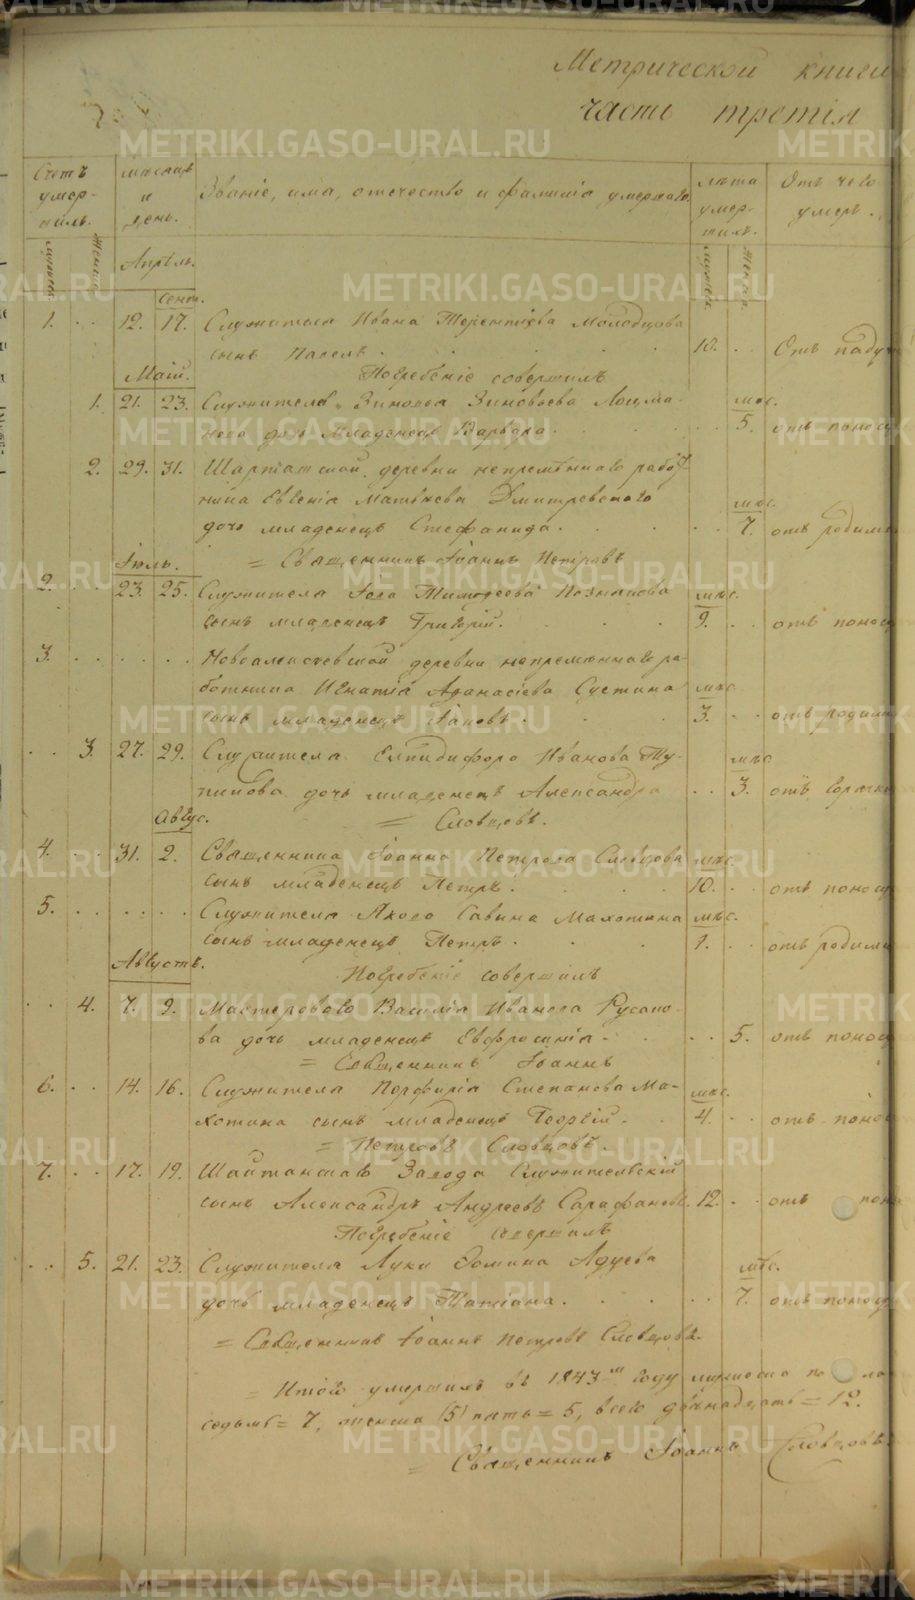 Метрической книги
часть третія
Счетъ умер-шихъ.
мѣсяцъ и день.
Званіе, имя, отечество и фамилія умершаго.
лѣта умер-шихъ.
Отъ чего умеръ.
мужеска женска
Апрѣль.
мужеска женска
Сент.
1. 12. 17. Служителя Ивана Терентьева Молодцова
сынъ Павелъ. 10. Отъ
Маій. Погребеніе совершилъ
1. 21. 23. Служителя Зиновья Зиновьева мѣс.
дочь младенецъ Варвара. 5. отъ поноса
2. 29. 31. Шарташской деревни непремѣннаго работ-
ника Евгенія Матвѣева Дмитревскаго мѣс.
дочь младенецъ Стефанида. 7. отъ родимца
Іюль. = Священникъ Іоаннъ Петровъ
2. 23. 25. Служителя Тимофеева Познякова мѣс.
сынъ младенецъ Григорій. 9. отъ поноса
3. Новоалексѣевской деревни непремѣннаго ра-
ботника Игнатія Афанасіева Сустина мѣс.
сынъ младенецъ Іаковъ. 3. отъ родимца
3. 27. 29. Служителя Елпидифора Иванова Ту- мѣс
пикова дочь младенецъ Александра 3. отъ горячки
Авгус. = Словцовъ.
4. 31. 2. Священника Іоанна Петрова Словцова мѣс.
сынъ младенецъ Петръ. 10. отъ поноса
5. Служителя Якова Савина Махотина мѣс.
сынъ младенецъ Петръ. 1. отъ родимца
Августъ. Погребеніе совершилъ
4. 7. 9. Мастероваго Василія Иванова Русано-
ва дочь младенецъ Евфросинія. 5. отъ поноса
= Священникъ Іоаннъ
6. 14. 16. Служителя Порфирія Степанова Ма- мѣс.
хотина сынъ младенецъ Георгій. 4. отъ поноса
= Петровъ Словцовъ.
7. 17. 19. Шайтанскаго Завода Служительскій
сынъ Александръ Андреевъ Сарафановъ. 12. отъ поноса
Погребеніе совершилъ
5. 21. 23. Служителя Луки Фомина Адуева мѣс.
дочь младенецъ Татіана. 7. отъ поноса
= Священникъ Іоаннъ Петровъ Словцовъ.
= Итого умершихъ въ 1843-м году мужеска пола
седьмъ = 7, женска (5) пять = 5, всего двѣнадцать = 12.
= Священникъ Іоаннъ Словцовъ
METRIKI.GASO-URAL.RU